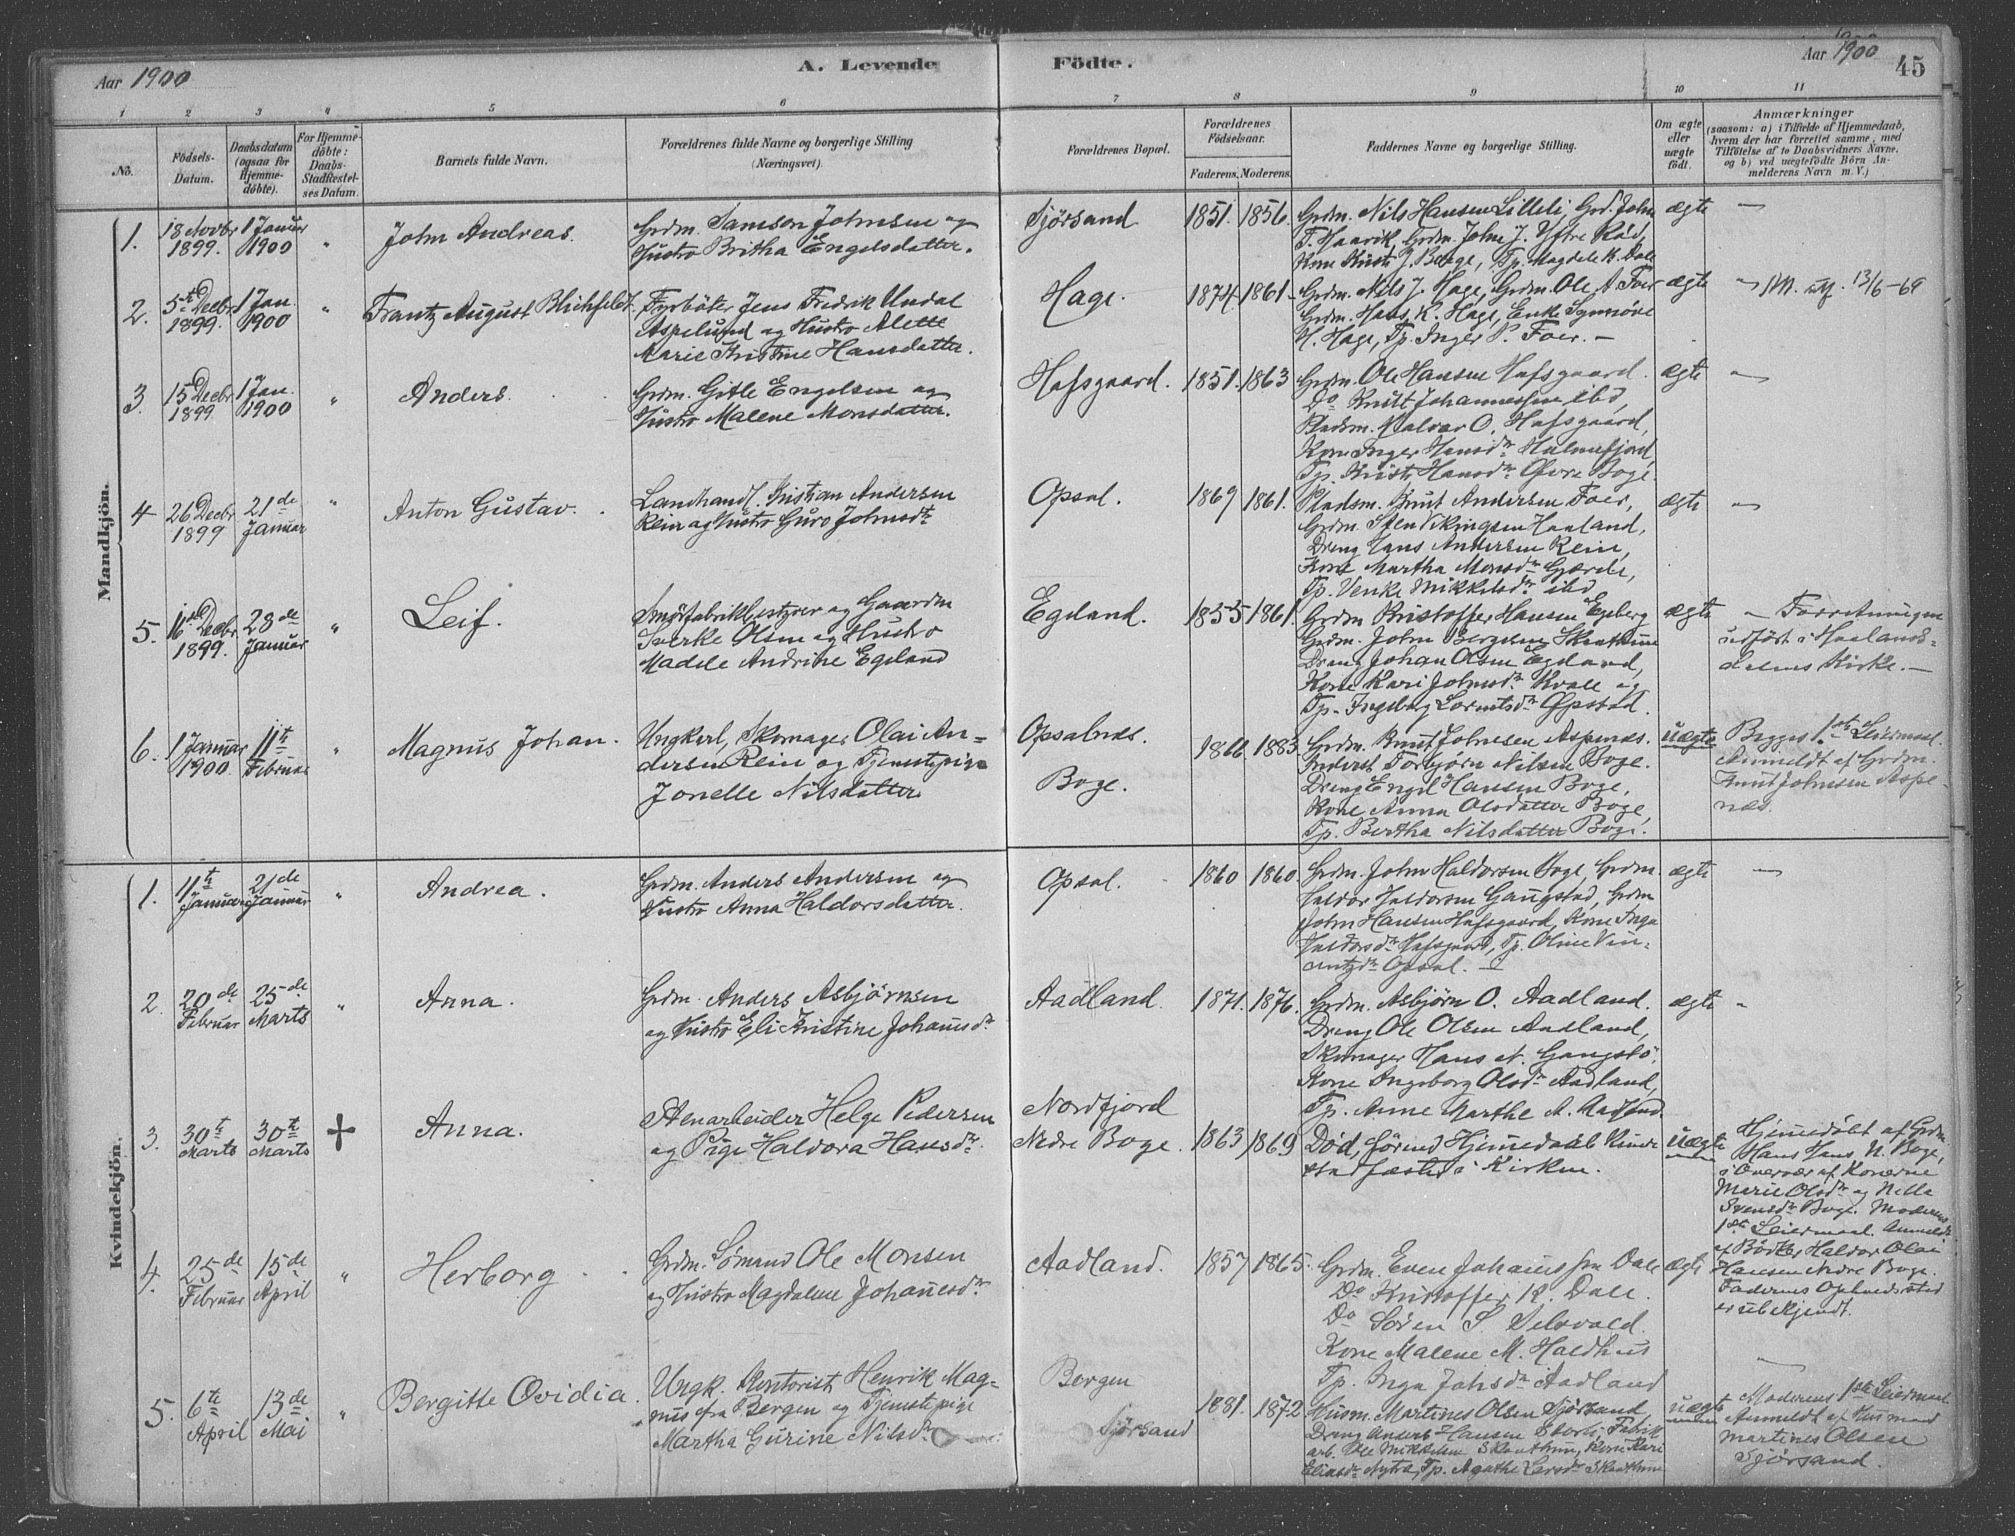 Aar 1900
A. Levende Födte.
Aar 1900
45
1 2 3 4 5 6 7 8 9 10 11
No.
Födsels-Datum.
Daabsdatum (ogsaa for Hjemme-döbte).
For Hjemme-döbte: Daabs-Stadfæstel-ses Datum.
Barnets fulde Navn.
Forældrenes fulde Navne og borgerlige Stilling
(Næringsvei).
Forældrenes Bopæl.
Forældrenes Födselsaar.
Faderens. Moderens.
Faddernes Navne og borgerlige Stilling.
Om ægte eller uægte födt.
Anmærkninger
(saasom: a) i Tilfælde af Hjemmedaab,
hvem der har forrettet samme, med
Tilföielse af to Daabsvidners Navne,
og b) ved uægtefödte Börn An-
melderens Navn m. V.)
Mandkjön.
1. 18 Novbr 1899. 1 Januar 1900 " John Andreas.
Grdm. Samson Johnsen og
Hustro Britha Engelsdatter.
Sjørsand 1851. 1856.
Grdm. Nils Hansen Lilleli, Grd. John
T. Haavik, Grdm. John J. Yttre Rød,
Kone Kristi J. Berge, Tp. Magdele K. Dale
ægte —
2. 5te Decbr 1899. 1 Jan. 1900 " Frantz August Blichfeldt.
Fyrbøter Jens Fredrik Undal
Aspelund og Hustro Alette
Marie Kristine Hansdatter.
Hage. 1874. 1861.
Grdm. Nils J. Hage, Grdm. Ole A. Foer
Grdm. Hans K. Hage, Enke Synnøve
H. Hage, Tp. Inger P. Foer. —
ægte 13/6-69
3. 15 Decbr 1899 1 Jan. 1900 " Anders.
Grdm. Gitle Engelsen og
Hustro Malene Monsdatter.
Hafsgaard. 1851. 1863
Grdm. Ole Hansen Hafsgaard.
Do Knut Johannessen ibd,
Pladsm. Halvar O. Hafsgaard,
Kone Inger Hansdr Holmefjord
Tp. Kristi Hansdr Øvre Boge.
ægte —
4 26 Decbr 1899 21de Januar " Anton Gustav.
Landhandl. Kristian Andersen
Rein og Hustro Guro Johnsdtr
Opsal. 1869 1861.
Pladsm. Knut Andersen Foer,
Grdm. Sten Vikingsen Haaland,
Dreng Hans Andersen Rein,
Kone Martha Monsdr Gjærde,
Tp. Venke Mikkelsdr ibd
ægte —
5. 16de Decbr. 1899. 28de Januar " Leif.
Smørfabrikbestyrer og Gaardm
Sverke Olsen og Hustro
Madele Andrine Egeland
Egeland. 1855 1861.
Grdm Kristoffer Hansen Engberg
Grdm. John Bergesen Skaathun
Dreng Johan Olsen Egeland,
Kone Kari Johnsdr Kvale og
Tp. Ingeborg Lorentsdr Opstad.
ægte
— Forretningen
udført i Haalands-
dalens Kirke. —
6. 1 Januar 1900. 11te Februar " Magnus Johan.
Ungkarl, Skomager Olai An-
dersen Rein og Tjenestepige
Jonelle Nilsdatter
Opsalnæs.
Boge.
1866 1883
Grdm. Knut Johnsen Aspenæs.
Inderst Torbjørn Nilsen Boge.
Dreng Engel Hansen Boge,
Kone Anna Olsdatter Boge,
Tp. Bertha Nilsdatter Boge.
uægte
Begges 1ste Leiermaal.
Anmeldt af Grdm.
Knut Johnsen Aspe-
næs.
Kvindekjön.
1. 11te Januar 21de Januar " Andrea.
Grdm. Anders Andersen og
Hustro Anna Haldorsdatter.
Opsal. 1860 1860
Grdm. John Haldorsen Boge, Grdm
Haldor Haldorsen Gangstad, Grdm
John Hansen Hafsgaard, Kone Inga
Haldorsdr Hafsgaard, Tp. Oline Vin-
centzdr Opsal. —
ægte —
2. 20de Februar 25de Marts " Anna.
Grdm. Anders Asbjørnsen
og Hustro Eli Kristine Johannesdr
Aadland. 1871. 1876.
Grdm. Asbjørn O. Aadland.
Dreng Ole Olsen Aadland,
Skomager Hans N. Gangstø.
Kone Ingeborg Olsdr Aadland,
Tp. Anne Marthe A. Aadland
ægte -
3. 30te Marts 30te Marts + Anna.
Stenarbeider Helge Pedersen
og Pige Haldora Hansdr.
Nordfjord
Nedre Boge. 1863 1869
Død, førend Hjemmedaab kunde
stadfæstes i Kirken.
uægte
Hjemmedøbt af Grdm.
Hans Hans N. Boge,
i Overvær af Konerne
Marie Olsdr og Nilla
Svensdr Boge. Moderens
1ste Leiermaal. Anmeldt
af Bødker Haldor Olai
Hansen Nedre Boge.
Faderens Opholdssted
er ubekjendt.
4. 25de Februar 15de April " Herborg
Grdm. Sømand Ole Monsen
og Hustro Magdalene Johannesdr
Aadland. 1857 1865.
Grdm. Even Johannessen Dale
Do Kristoffer K. Dale.
Do Søren S. Velsvold.
Kone Malene M. Haldhus
Tp. Inga Johsdr Aadland
ægte
5. 6te April 13de Mai " Bergitte Ovidia.
Ungk. Kontorist Henrik Mag-
nus fra Bergen og Tjenestepige
Martha Gurine Nilsdr
Bergen
Sjørsand
1881. 1872
Husm. Martines Olsen Sjørsand
Dreng Anders Hansen Eberli, Fabrik
arb. Ole Mikkelsen Skaathun, Kone Kari
Eliasdr Nytræ, Tp. Agathe Larsdr Skaathun
uægte
—
Moderens 1ste Leiermaal
Anmeldt af Husmand
Martines Olsen
Sjørsand.